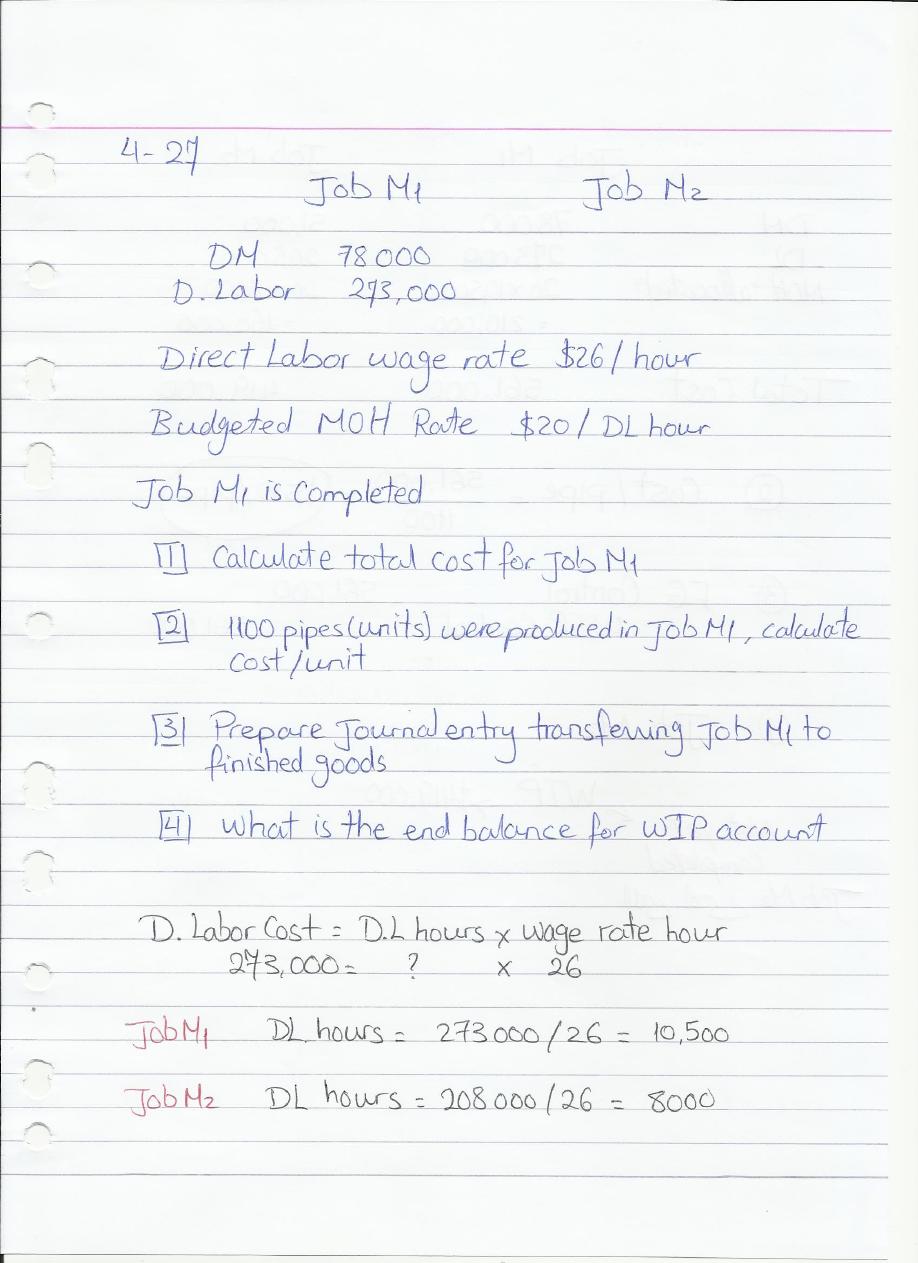 4-27
Job M1 Job M2
DM 78000
D. Labor 273,000
Direct Labor wage rate $26/hour
Budgeted MOH Rate $20/DL hour
Job M1 is Completed
1 Calculate total cost for Job M1
2 1100 pipes (units) were produced in Job M1, calculate
cost/unit
3 Prepare Journal entry transferring Job M1 to
finished goods
4 What is the end balance for WIP account
D. Labor Cost = D.L hours x wage rate hour
273,000 = ? x 26
Job M1 DL hours = 273000/26 = 10,500
Job M2 DL hours = 208000/26 = 8000